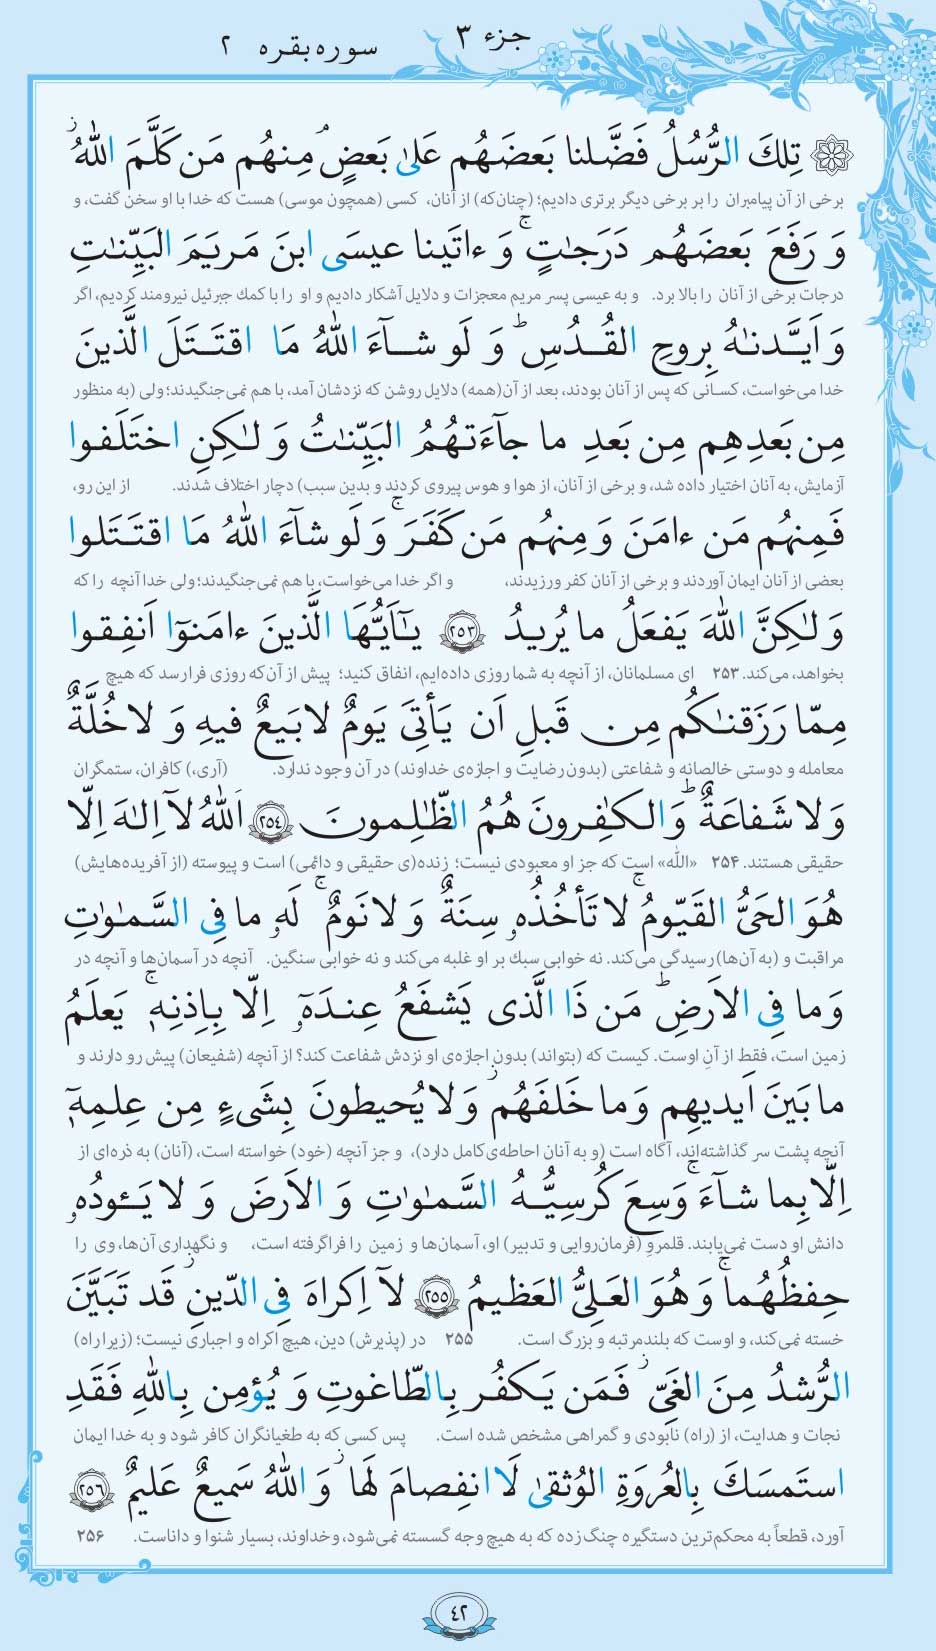 جزء ۳
سوره بقره ۲
تِلكَ الرُّسُلُ فَضَّلنا بَعضَهُم عَلىٰ بَعضٍ ۘ مِنهُم مَن كَلَّمَ اللّٰهُ ۖ
برخی از آن پیامبران را بر برخی دیگر برتری دادیم؛ (چنان‌که) از آنان، کسی (همچون موسی) هست که خدا با او سخن گفت، و
وَ رَفَعَ بَعضَهُم دَرَجٰتٍ ۚ وَ ءاتَينا عيسَى ابنَ مَريَمَ البَيِّنٰتِ
درجات برخی از آنان را بالا برد. و به عیسی پسر مریم معجزات و دلایل آشکار دادیم و او را با کمك جبرئیل نیرومند کردیم، اگر
وَ اَيَّدنٰهُ بِروحِ القُدُسِ ۗ وَ لَو شآءَ اللّٰهُ مَا اقتَتَلَ الَّذينَ
خدا می‌خواست، کسانی که پس از آنان بودند، بعد از آن (همه) دلایل روشن که نزدشان آمد، با هم نمی‌جنگیدند؛ ولی (به منظور
مِن بَعدِهِم مِن بَعدِ ما جآءَتهُمُ البَيِّنٰتُ وَ لٰكِنِ اختَلَفوا
آزمایش، به آنان اختیار داده شد، و برخی از آنان، از هوا و هوس پیروی کردند و بدین سبب) دچار اختلاف شدند. از این رو،
فَمِنهُم مَن ءامَنَ وَ مِنهُم مَن كَفَرَ ۚ وَ لَو شآءَ اللّٰهُ مَا اقتَتَلوا
بعضی از آنان ایمان آوردند و برخی از آنان کفر ورزیدند، و اگر خدا می‌خواست، با هم نمی‌جنگیدند؛ ولی خدا آنچه را که
وَ لٰكِنَّ اللّٰهَ يَفعَلُ ما يُريدُ ٢٥٣ يٰٓاَيُّهَا الَّذينَ ءامَنوٓا اَنفِقوا
بخواهد، می‌کند. ۲۵۳ ای مسلمانان، از آنچه به شما روزی داده‌ایم، انفاق کنید؛ پیش از آن‌که روزی فرارسد که هیچ
مِمّا رَزَقنٰكُم مِن قَبلِ اَن يَأتِىَ يَومٌ لا بَيعٌ فيهِ وَ لا خُلَّةٌ
معامله و دوستی خالصانه و شفاعتی (بدون رضایت و اجازه‌ی خداوند) در آن وجود ندارد. (آری،) کافران، ستمگران
وَ لا شَفاعَةٌ ۗ وَ الكٰفِرونَ هُمُ الظّٰلِمونَ ٢٥٤ اَللّٰهُ لآ اِلٰهَ اِلّا
حقیقی هستند. ۲۵۴ «الله» است که جز او معبودی نیست؛ زنده(ی حقیقی و دائمی) است و پیوسته (از آفریده‌هایش)
هُوَ الحَىُّ القَيّومُ ۚ لا تَأخُذُهٗ سِنَةٌ وَ لا نَومٌ ۚ لَهٗ ما فِى السَّمٰوٰتِ
مراقبت و (به آن‌ها) رسیدگی می‌کند. نه خوابی سبك بر او غلبه می‌کند و نه خوابی سنگین. آنچه در آسمان‌ها و آنچه در
وَ ما فِى الاَرضِ ۗ مَن ذَا الَّذى يَشفَعُ عِندَهٗٓ اِلّا بِاِذنِهٖ ۚ يَعلَمُ
زمین است، فقط از آنِ اوست. کیست که (بتواند) بدون اجازه‌ی او نزدش شفاعت کند؟ از آنچه (شفیعان) پیش رو دارند و
ما بَينَ اَيديهِم وَ ما خَلفَهُم ۖ وَ لا يُحيطونَ بِشَىءٍ مِن عِلمِهٖٓ
آنچه پشت سر گذاشته‌اند، آگاه است (و به آنان احاطه‌ی کامل دارد)، و جز آنچه (خود) خواسته است، (آنان) به ذره‌ای از
اِلّا بِما شآءَ ۚ وَسِعَ كُرسِيُّهُ السَّمٰوٰتِ وَ الاَرضَ ۖ وَ لا يَـٔودُهٗ
دانش او دست نمی‌یابند. قلمروِ (فرمان‌روایی و تدبیر) او، آسمان‌ها و زمین را فراگرفته است، و نگهداری آن‌ها، وی را
حِفظُهُما ۚ وَ هُوَ العَلِىُّ العَظيمُ ٢٥٥ لآ اِكراهَ فِى الدّينِ ۖ قَد تَبَيَّنَ
خسته نمی‌کند، و اوست که بلندمرتبه و بزرگ است. ۲۵۵ در (پذیرش) دین، هیچ اکراه و اجباری نیست؛ (زیرا راه)
الرُّشدُ مِنَ الغَىِّ ۚ فَمَن يَكفُر بِالطّاغوتِ وَ يُؤمِن بِاللّٰهِ فَقَدِ
نجات و هدایت، از (راه) نابودی و گمراهی مشخص شده است. پس کسی که به طغیانگران کافر شود و به خدا ایمان
استَمسَكَ بِالعُروَةِ الوُثقىٰ لَا انفِصامَ لَها ۗ وَ اللّٰهُ سَميعٌ عَليمٌ ٢٥٦
آورد، قطعاً به محکم‌ترین دستگیره چنگ زده که به هیچ وجه گسسته نمی‌شود، و خداوند، بسیار شنوا و داناست. ۲۵۶
٤٢